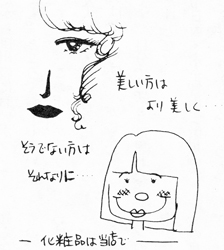 美しい方は
より美しく…
そうでない方は
それなりに…‥
— 化粧品は当店で —